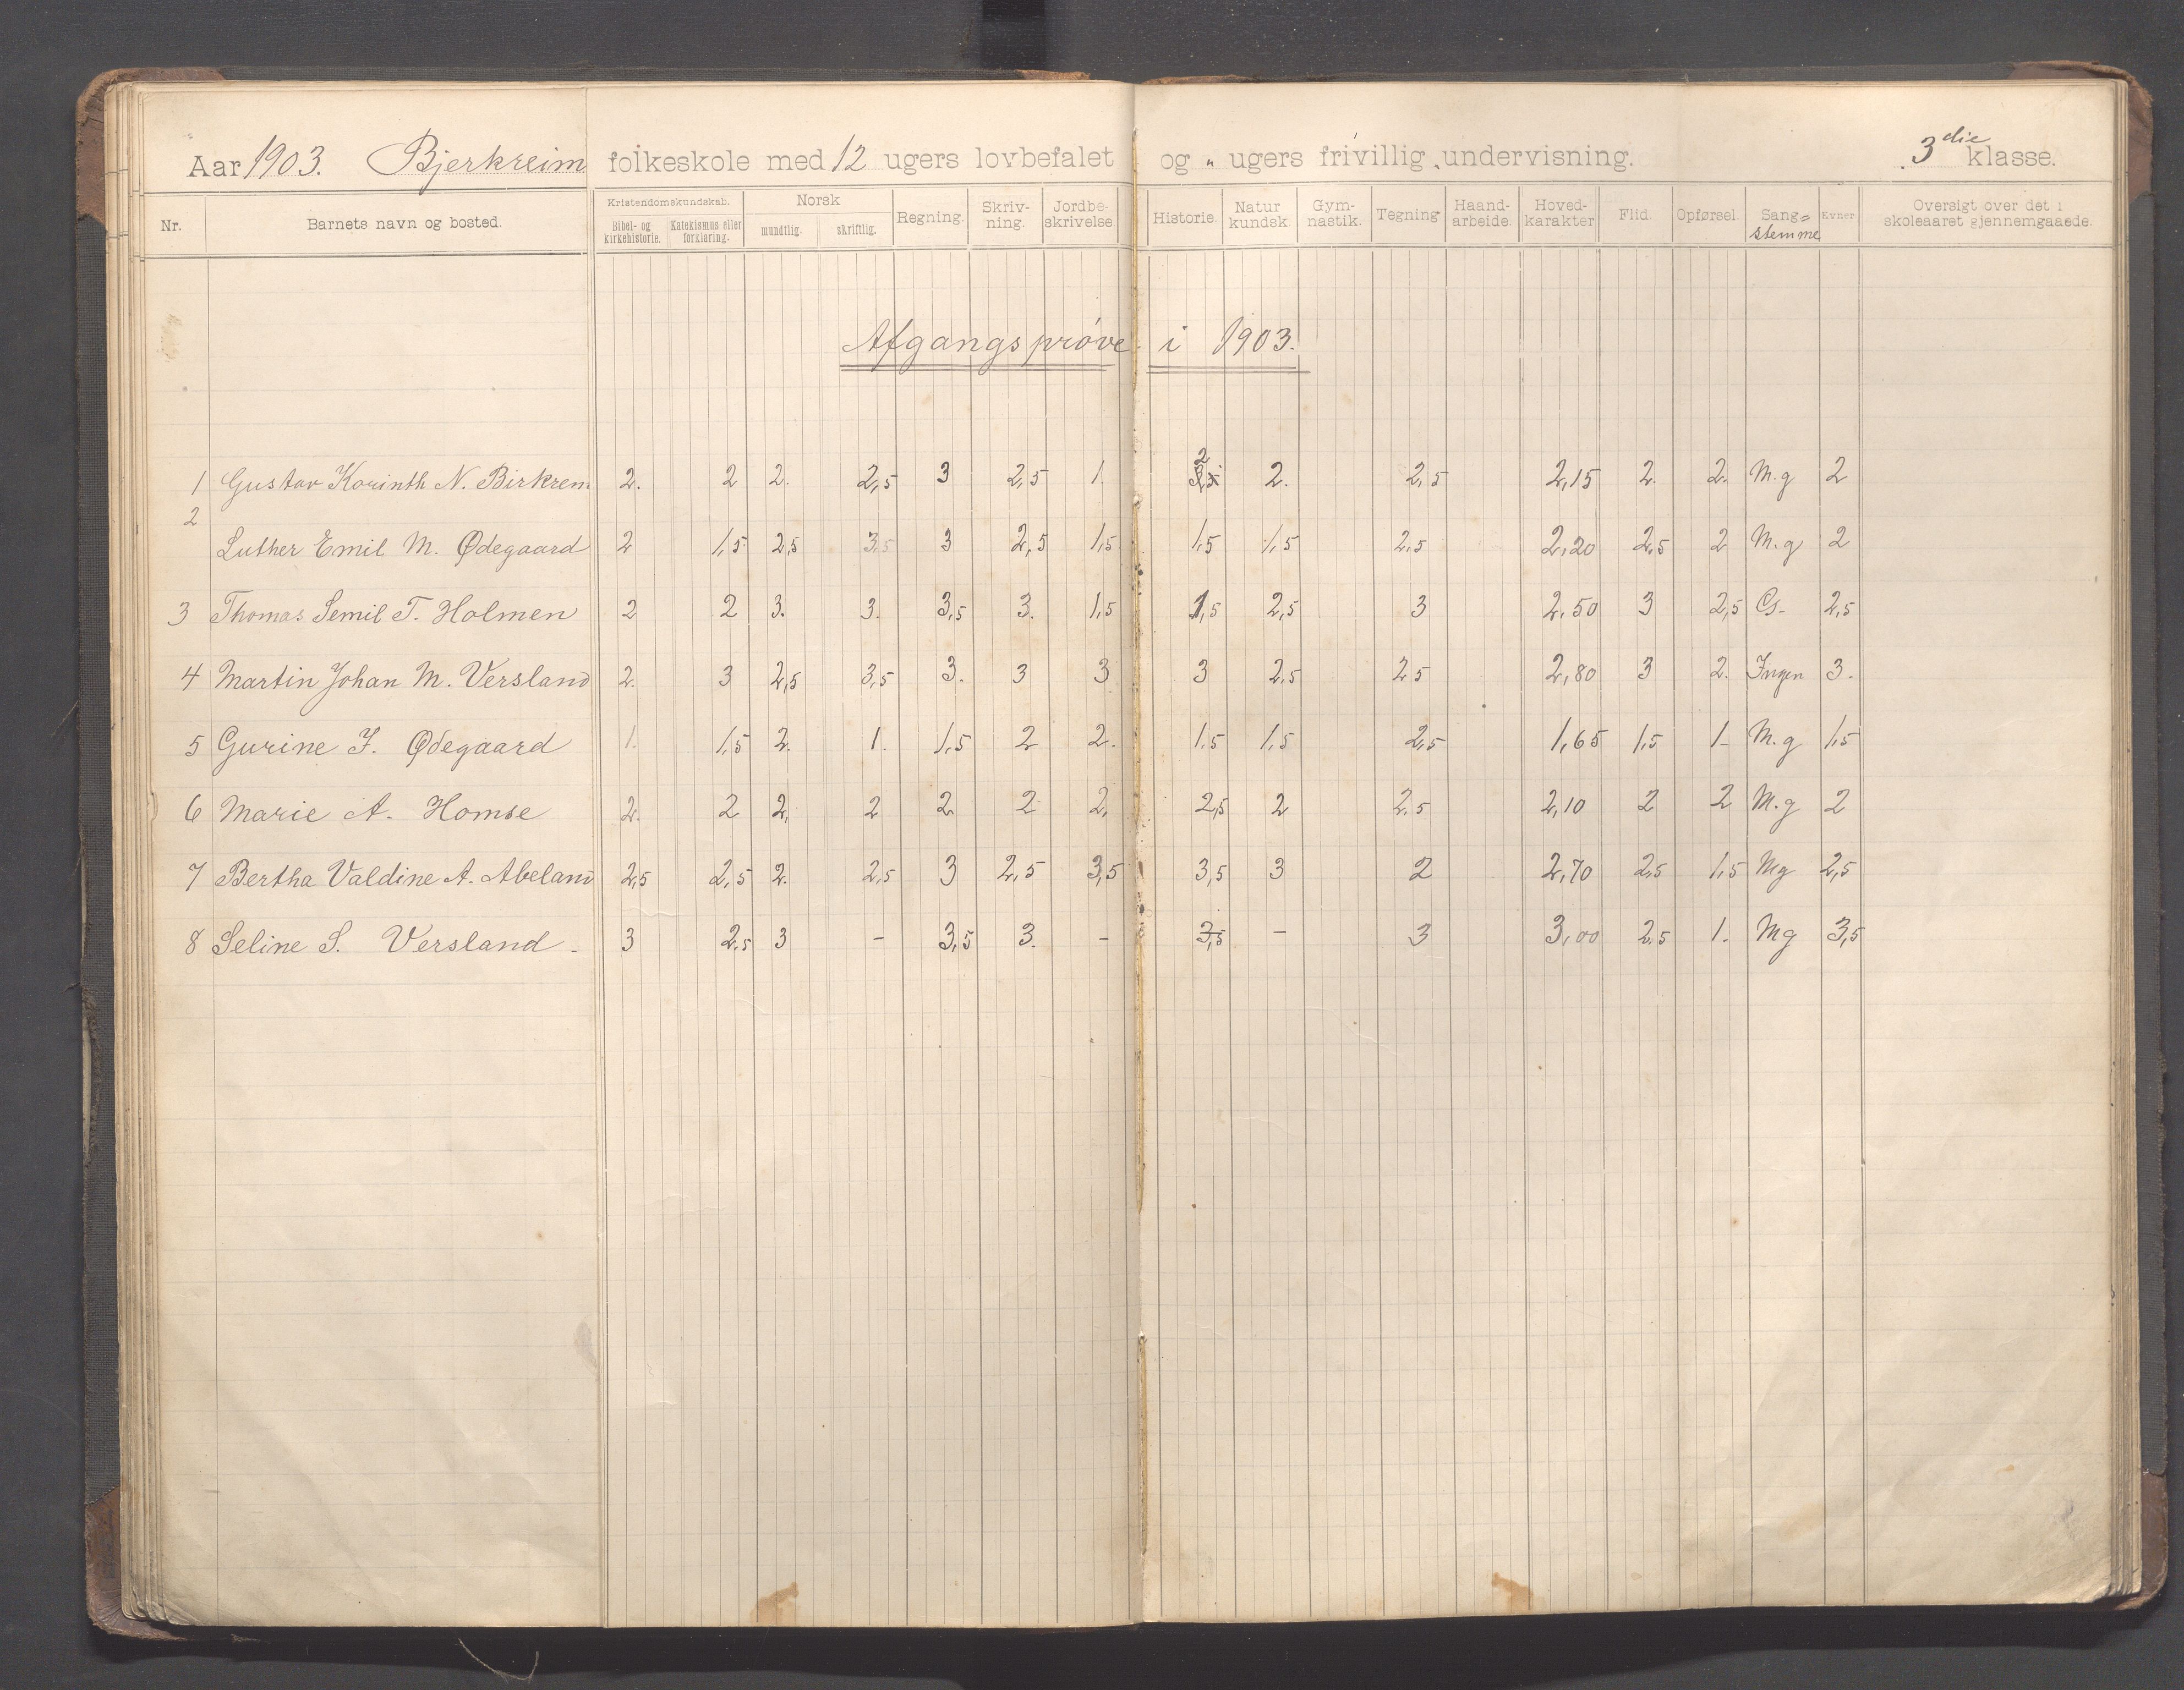 Aar 1903. Bjerkreim folkeskole med 12 ugers lovbefalet og " ugers frivillig undervisning. 3die klasse.
Nr. Barnets navn og bosted. Kristendomskundskab. Bibel- og kirkehistorie. Katekismus eller forklaring. Norsk mundtlig. skriftlig. Regning. Skriv-ning. Jordbe-skrivelse Historie. Natur kundsk. Gym-nastik. Tegning Haand-arbeide. Hoved-karakter Flid. Opførsel. Sang= stemme Evner Oversigt over det i skoleaaret gjennemgaaede.
Afgangsprøve i 1903.
1 Gustav Korinth N. Birkrem 2. 2 2. 2,5 3 2,5 1. 2 2. 2,5 2,15 2. 2. M.g 2
2 Luther Emil M. Ødegaard 2 1,5 2,5 3,5 3 2,5 1,5 1,5 1,5 2,5 2,20 2,5 2 M.g 2
3 Thomas Semil T. Holmen 2 2 3. 3. 3,5 3. 1,5 1,5 2,5 3 2,50 3 2,5 G. 2,5
4 Martin Johan M. Versland 2. 3 2,5 3,5 3. 3 3 3 2,5 2 5 2,80 3 2. Ingen 3.
5 Gurine J. Ødegaard 1. 1,5 2. 1. 1,5 2 2. 1,5 1,5 2,5 1,65 1,5 1- M.g 1,5
6 Marie A. Homse 2. 2 2, 2 2 2 2, 2,5 2 2,5 2,10 2 2 M.g 2
7 Bertha Valdine A. Abeland 2,5 2,5 2. 2,5 3 2,5 3,5 3,5 3 2 2,70 2,5 1,5 Mg 2,5
8 Seline S. Versland - 3 2,5 3 - 3,5 3. - 3,5 - 3 3,00 2,5 1. Mg 3,5